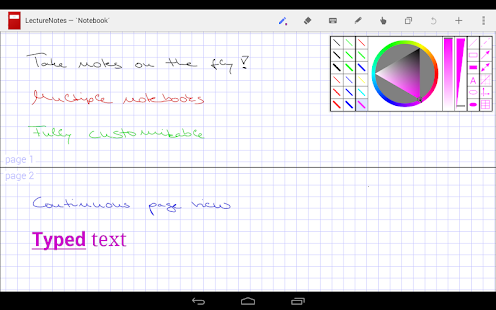 LectureNotes — `Notebook´
Take notes on the fly!
Multiple notebooks
Fully customizable
page 1
page 2
Continuous page view
Typed text